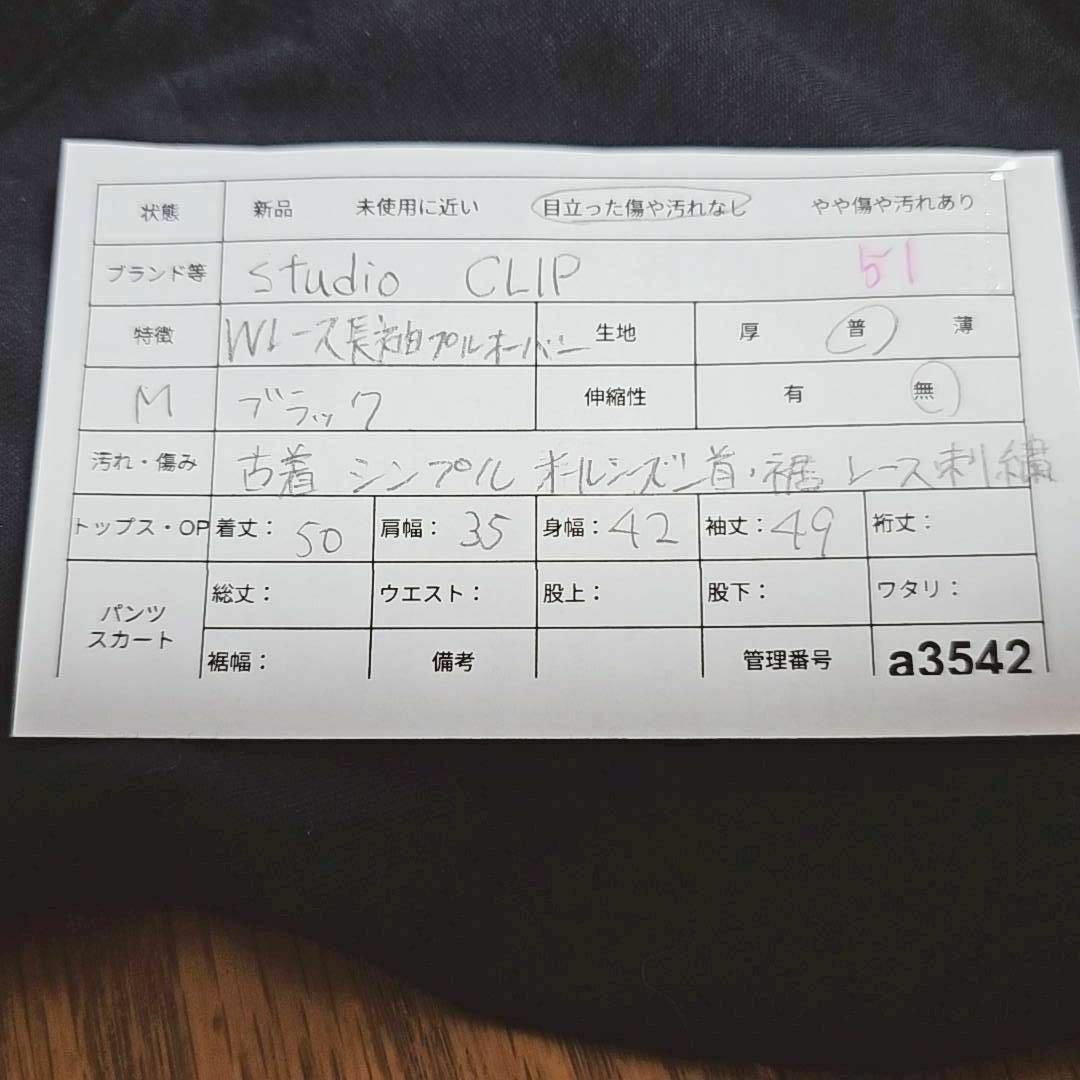 状態 新品 未使用に近い 目立った傷や汚れなし やや傷や汚れあり
ブランド等 studio CLIP 51
特徴 Wレース長袖プルオーバー 生地 厚 普 薄
M ブラック 伸縮性 有 無
汚れ・傷み 古着 シンプル オールシーズン 首・裾 レース刺繍
トップス・OP 着丈: 50 肩幅: 35 身幅: 42 袖丈: 49 裄丈:
パンツ スカート 総丈: ウエスト: 股上: 股下: ワタリ:
裾幅: 備考 管理番号 a3542